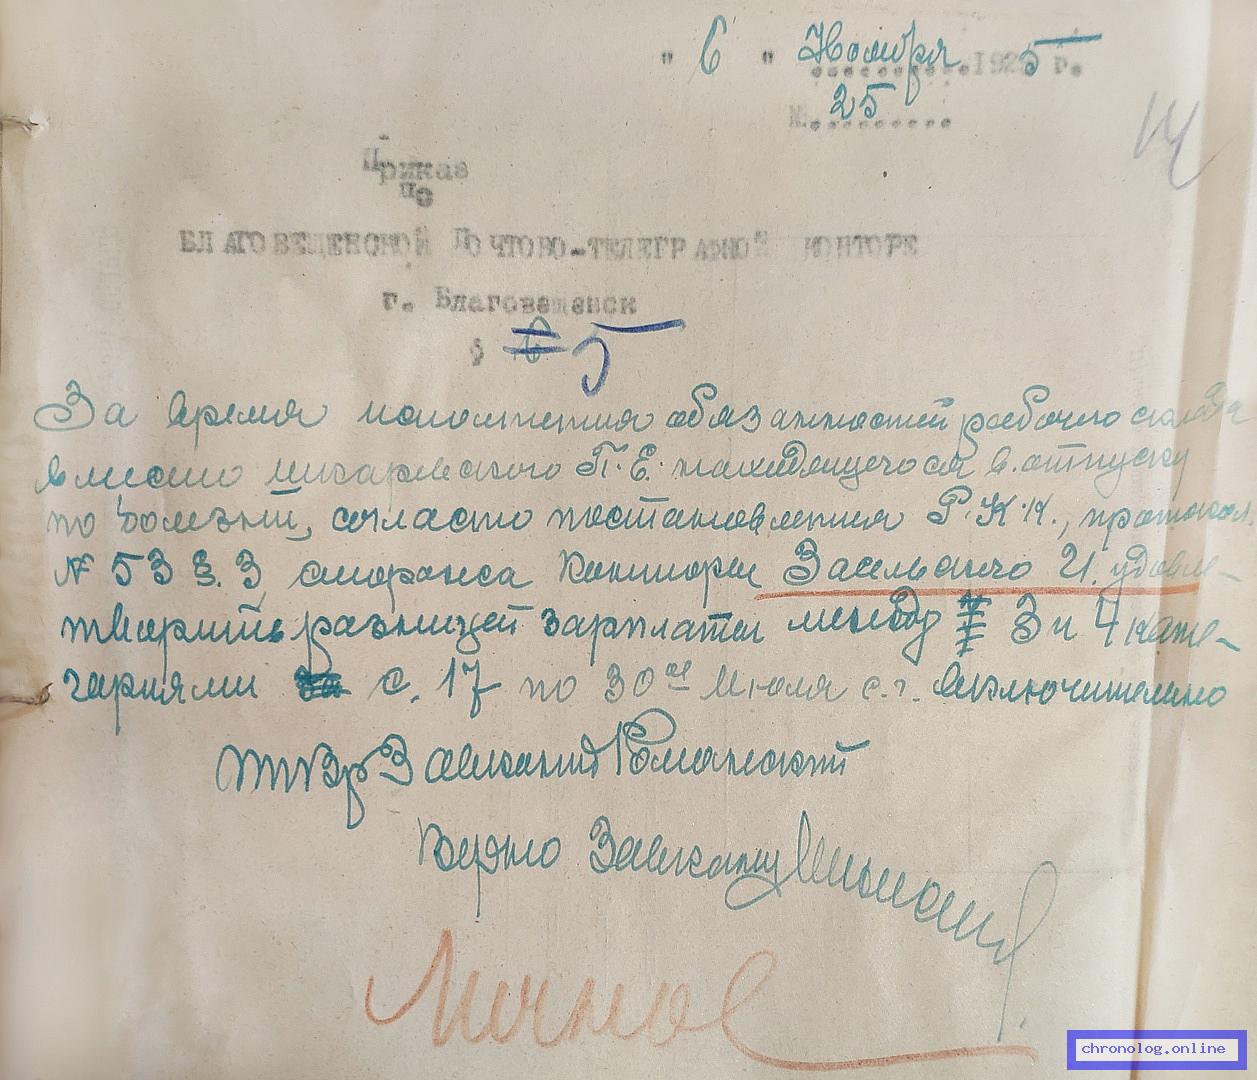 " 6 " Ноября 1925 г.
№ 25
Приказ
по
БЛАГОВЕЩЕНСКОЙ ПОЧТОВО-ТЕЛЕГРАФНОЙ КОНТОРЕ
г. Благовещенск
§ 5
За время исполнения обязанностей рабочего склада
вместо Шкаревского П.Е. находящегося в отпуску
по болезни, согласно постановления Р.К.К., протокол
№ 53 § 3 сторожа Конторы Засельского И. удовле-
творить разницей зарплаты между 3 и 4 кате-
гориями с 17 по 30ое Июля с.г. включительно
Романовский
Верно Завканц
Личное
chronolog.online